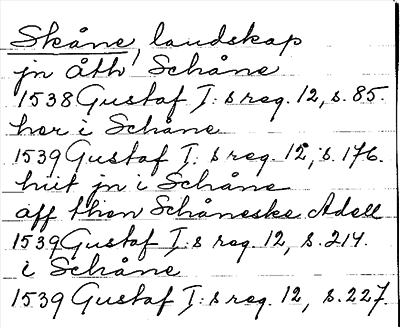 Skåne, landskap
jn åth Schåne
1538 Gustaf I:s reg. 12, s. 85.
her i Schåne
1539 Gustaf I:s reg. 12, s. 176.
hiit jn i Schåne
aff then Schåneske Adell
1539 Gustaf I:s reg. 12, s. 214.
i Schåne
1539 Gustaf I:s reg. 12, s. 227.